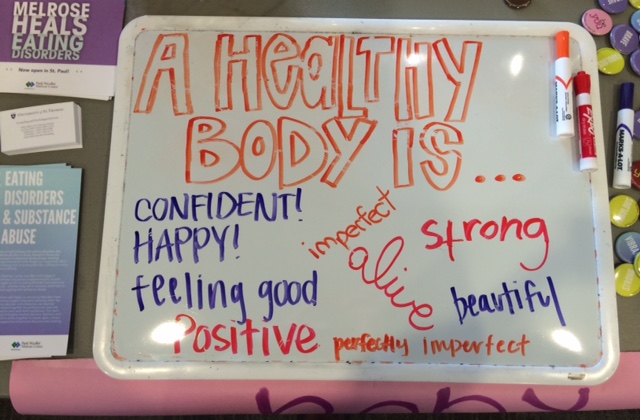 MELROSE
HEALS
EATING
DISORDERS
Now open in St. Paul!
EATING
DISORDERS
& SUBSTANCE
ABUSE
A HEALTHY
BODY IS...
CONFIDENT!
HAPPY!
feeling good
Positive
imperfect
alive
strong
beautiful
perfectly imperfect
EXPO
MARKS-A-LOT
body